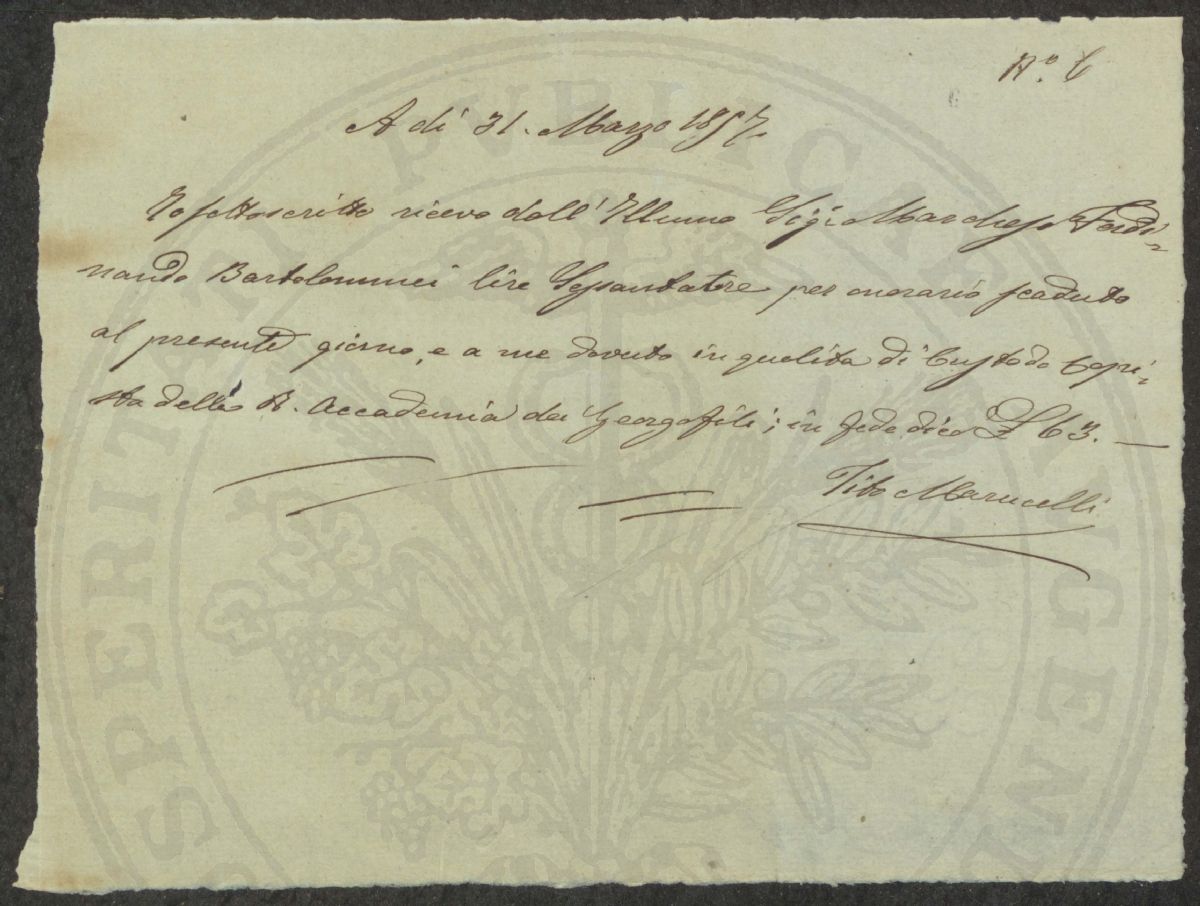 N.º 6
A dì 31. Marzo 1857.
Io sottoscritto ricevo dall' Illumo Sigr. Marchese Ferdi-
nando Bartolommei lire Sessantatre per onorario scaduto
al presente giorno, e a me dovuto in qualità di Custode Copi-
sta della R. Accademia dei Georgofili; in fede dico £ 63. —
Tito Marucelli
PUBLICAE
PROSPERITATI
AUGENDAE